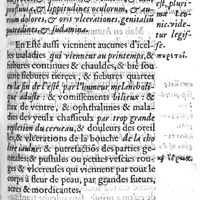 lippitudines oculorum, &
aurium dolores, & oris vlcerationes, genitaliū
putredines, & sudamina.
En Esté aussi viennent aucunes d'icel-
les maladies qui viennent au printemps, &
fiebures continues & chauldes, & biē sou-
uent fiebures tierces, & fiebures quartes
en la fin de l'esté par l'humeur melancholi-
que aduste, & vomissements bilieux, & flux
de ventre, & ophthalmies & mala-
dies des yeulx chassieulx par trop grande
du cerueau, & douleurs des oreil
les & vlcerations de la bouche
& putrefactiōs des parties ge-
nitales, & pustules ou petites vescies rou-
ges & vlcereuses qui viennent par tout le
corps à fleur de peau, par grandes sueurs,
& mordicantes.
est, pluri-
ma Leo-
nic. vide-
tur legis-
se.
πυρετοὶ.